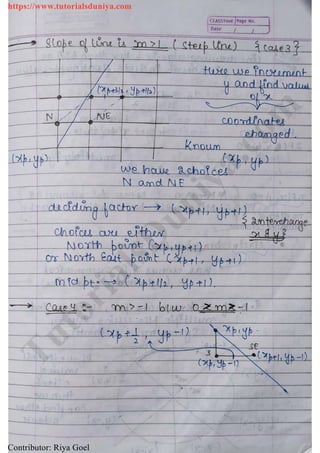 https://www.tutorialsduniya.com
classmate Page No.
Date
→ Slope of line is m > 1 ( steep line) {case 3}
Here we increment
y and find value
of x
(xp+1/2, yp+1/2)
N
NE
coordinates
changed.
Known
(xp, yp)
(xp, yp)
we have 2 choices
N and NE
deciding factor → (xp+1, yp+1)
{ Interchange
x & y}
choices are either
North point (xp, yp+1)
or North East point (xp+1, yp+1)
mid pt. → (xp+1/2, yp+1).
→ Case 4 :- m > -1 b/w 0 ≥ m ≥ -1
(xp + 1/2, yp-1)
xp, yp.
S
SE
(xp+1, yp-1)
(xp, yp-1)
Tutorialsduniya.com
Contributor: Riya Goel